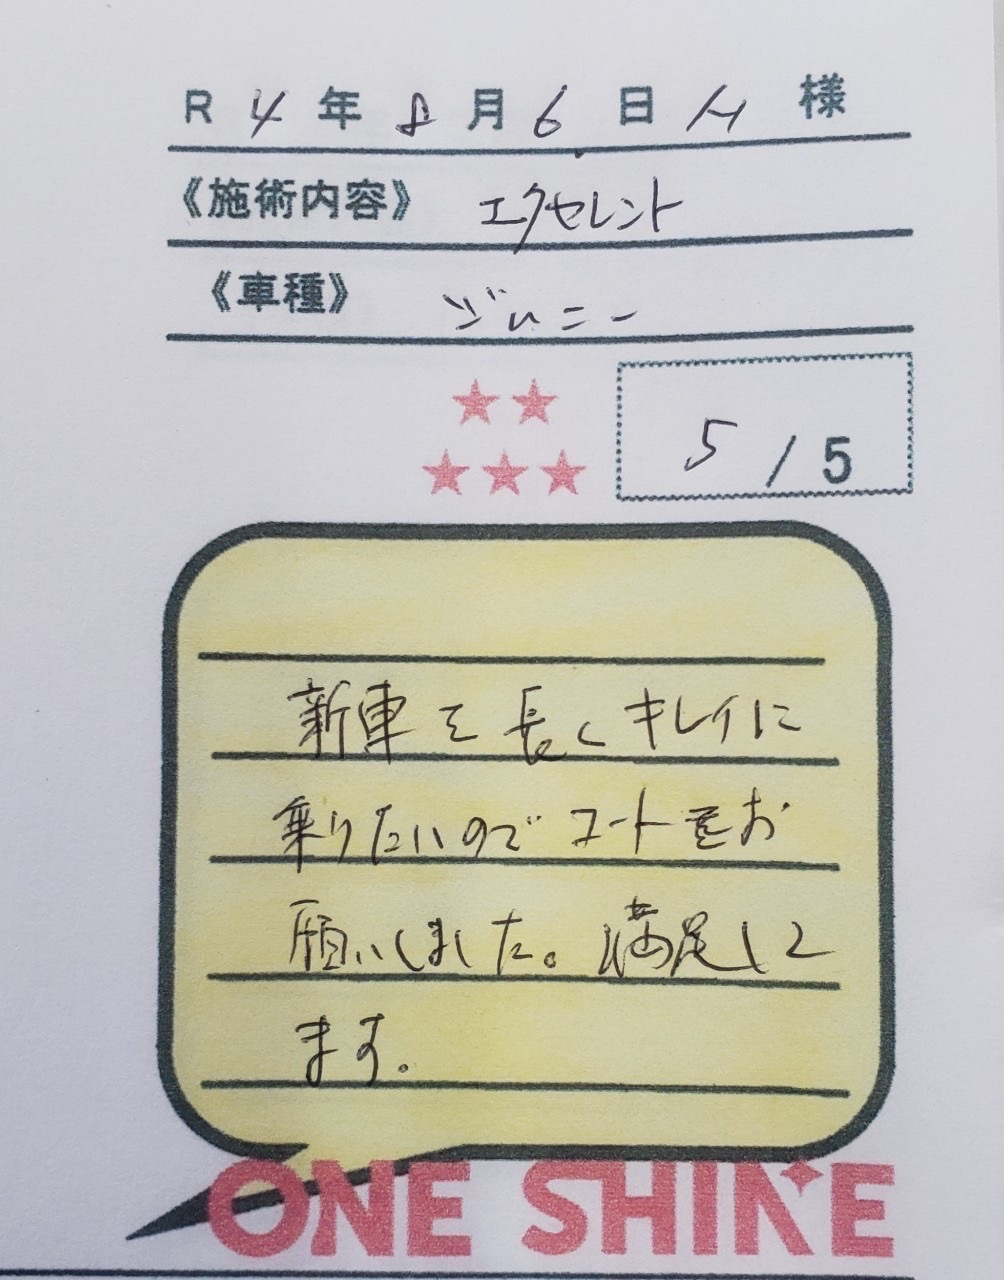 R 4 年 8 月 6 日 H 様
《施術内容》 エクセレント
《車種》 ジムニー
★★
★★★
5 / 5
新車を長くキレイに
乗りたいのでコートをお
願いしました。満足して
ます。
ONE SHINE